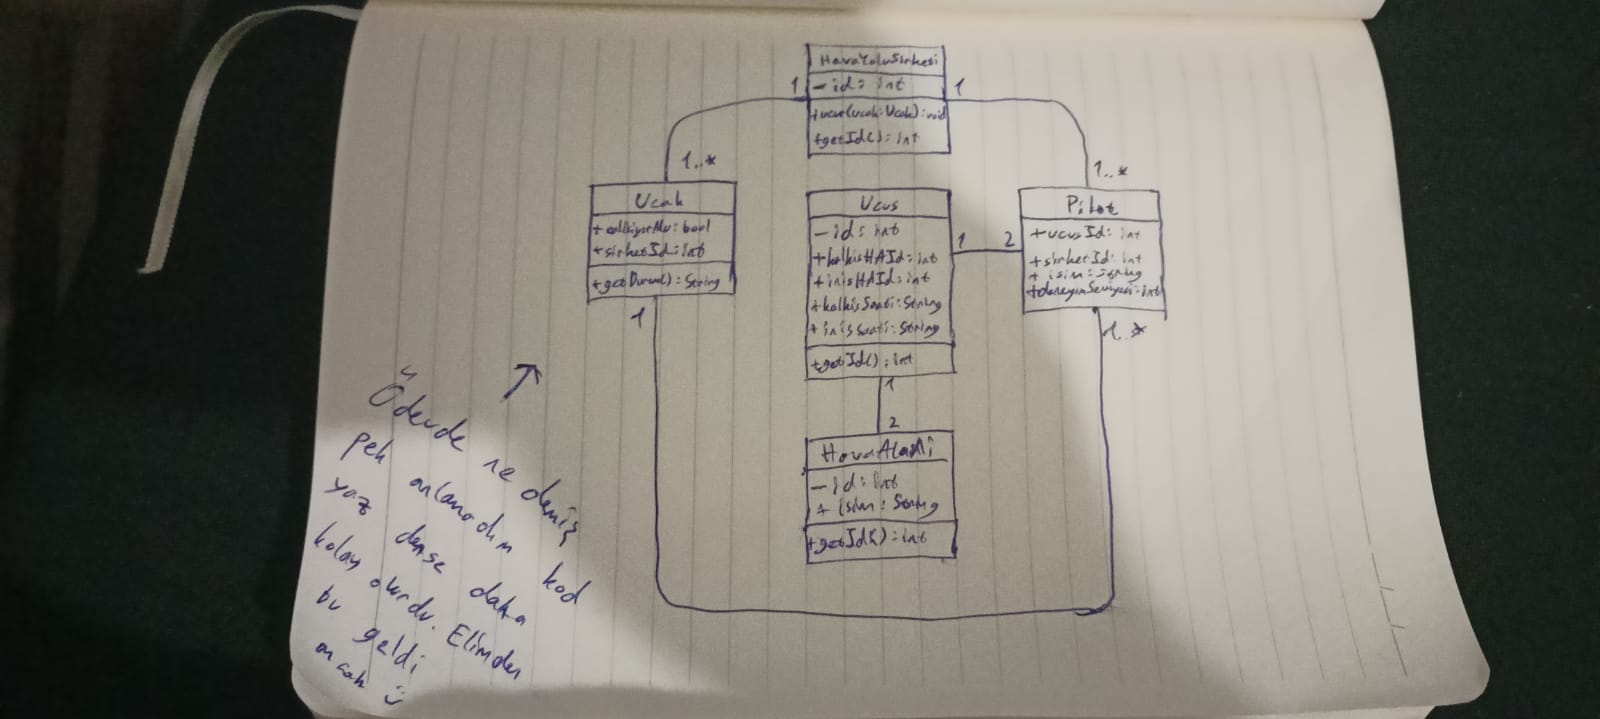 HavaYoluSirketi
- id: int
+ucur(ucak: Ucak): void
+getId(): int
1
1
1..*
1..*
Ucak
+ calisiyorMu: bool
+ sirketId: int
+getDurum(): String
1
Ucus
- id: int
+kalkisHAId: int
+inisHAId: int
+kalkisSaati: String
+ inisSaati: String
+getId(): int
1
2
1
2
Pilot
+ucusId: int
+sirketId: int
+ isim: String
+deneyimSeviyesi: int
1..*
HavaAlani
- id: int
+ isim: String
+getId(): int
Ödevde ne demiş
pek anlamadım kod
yaz dense daha
kolay olurdu. Elimden
bu geldi
ancak